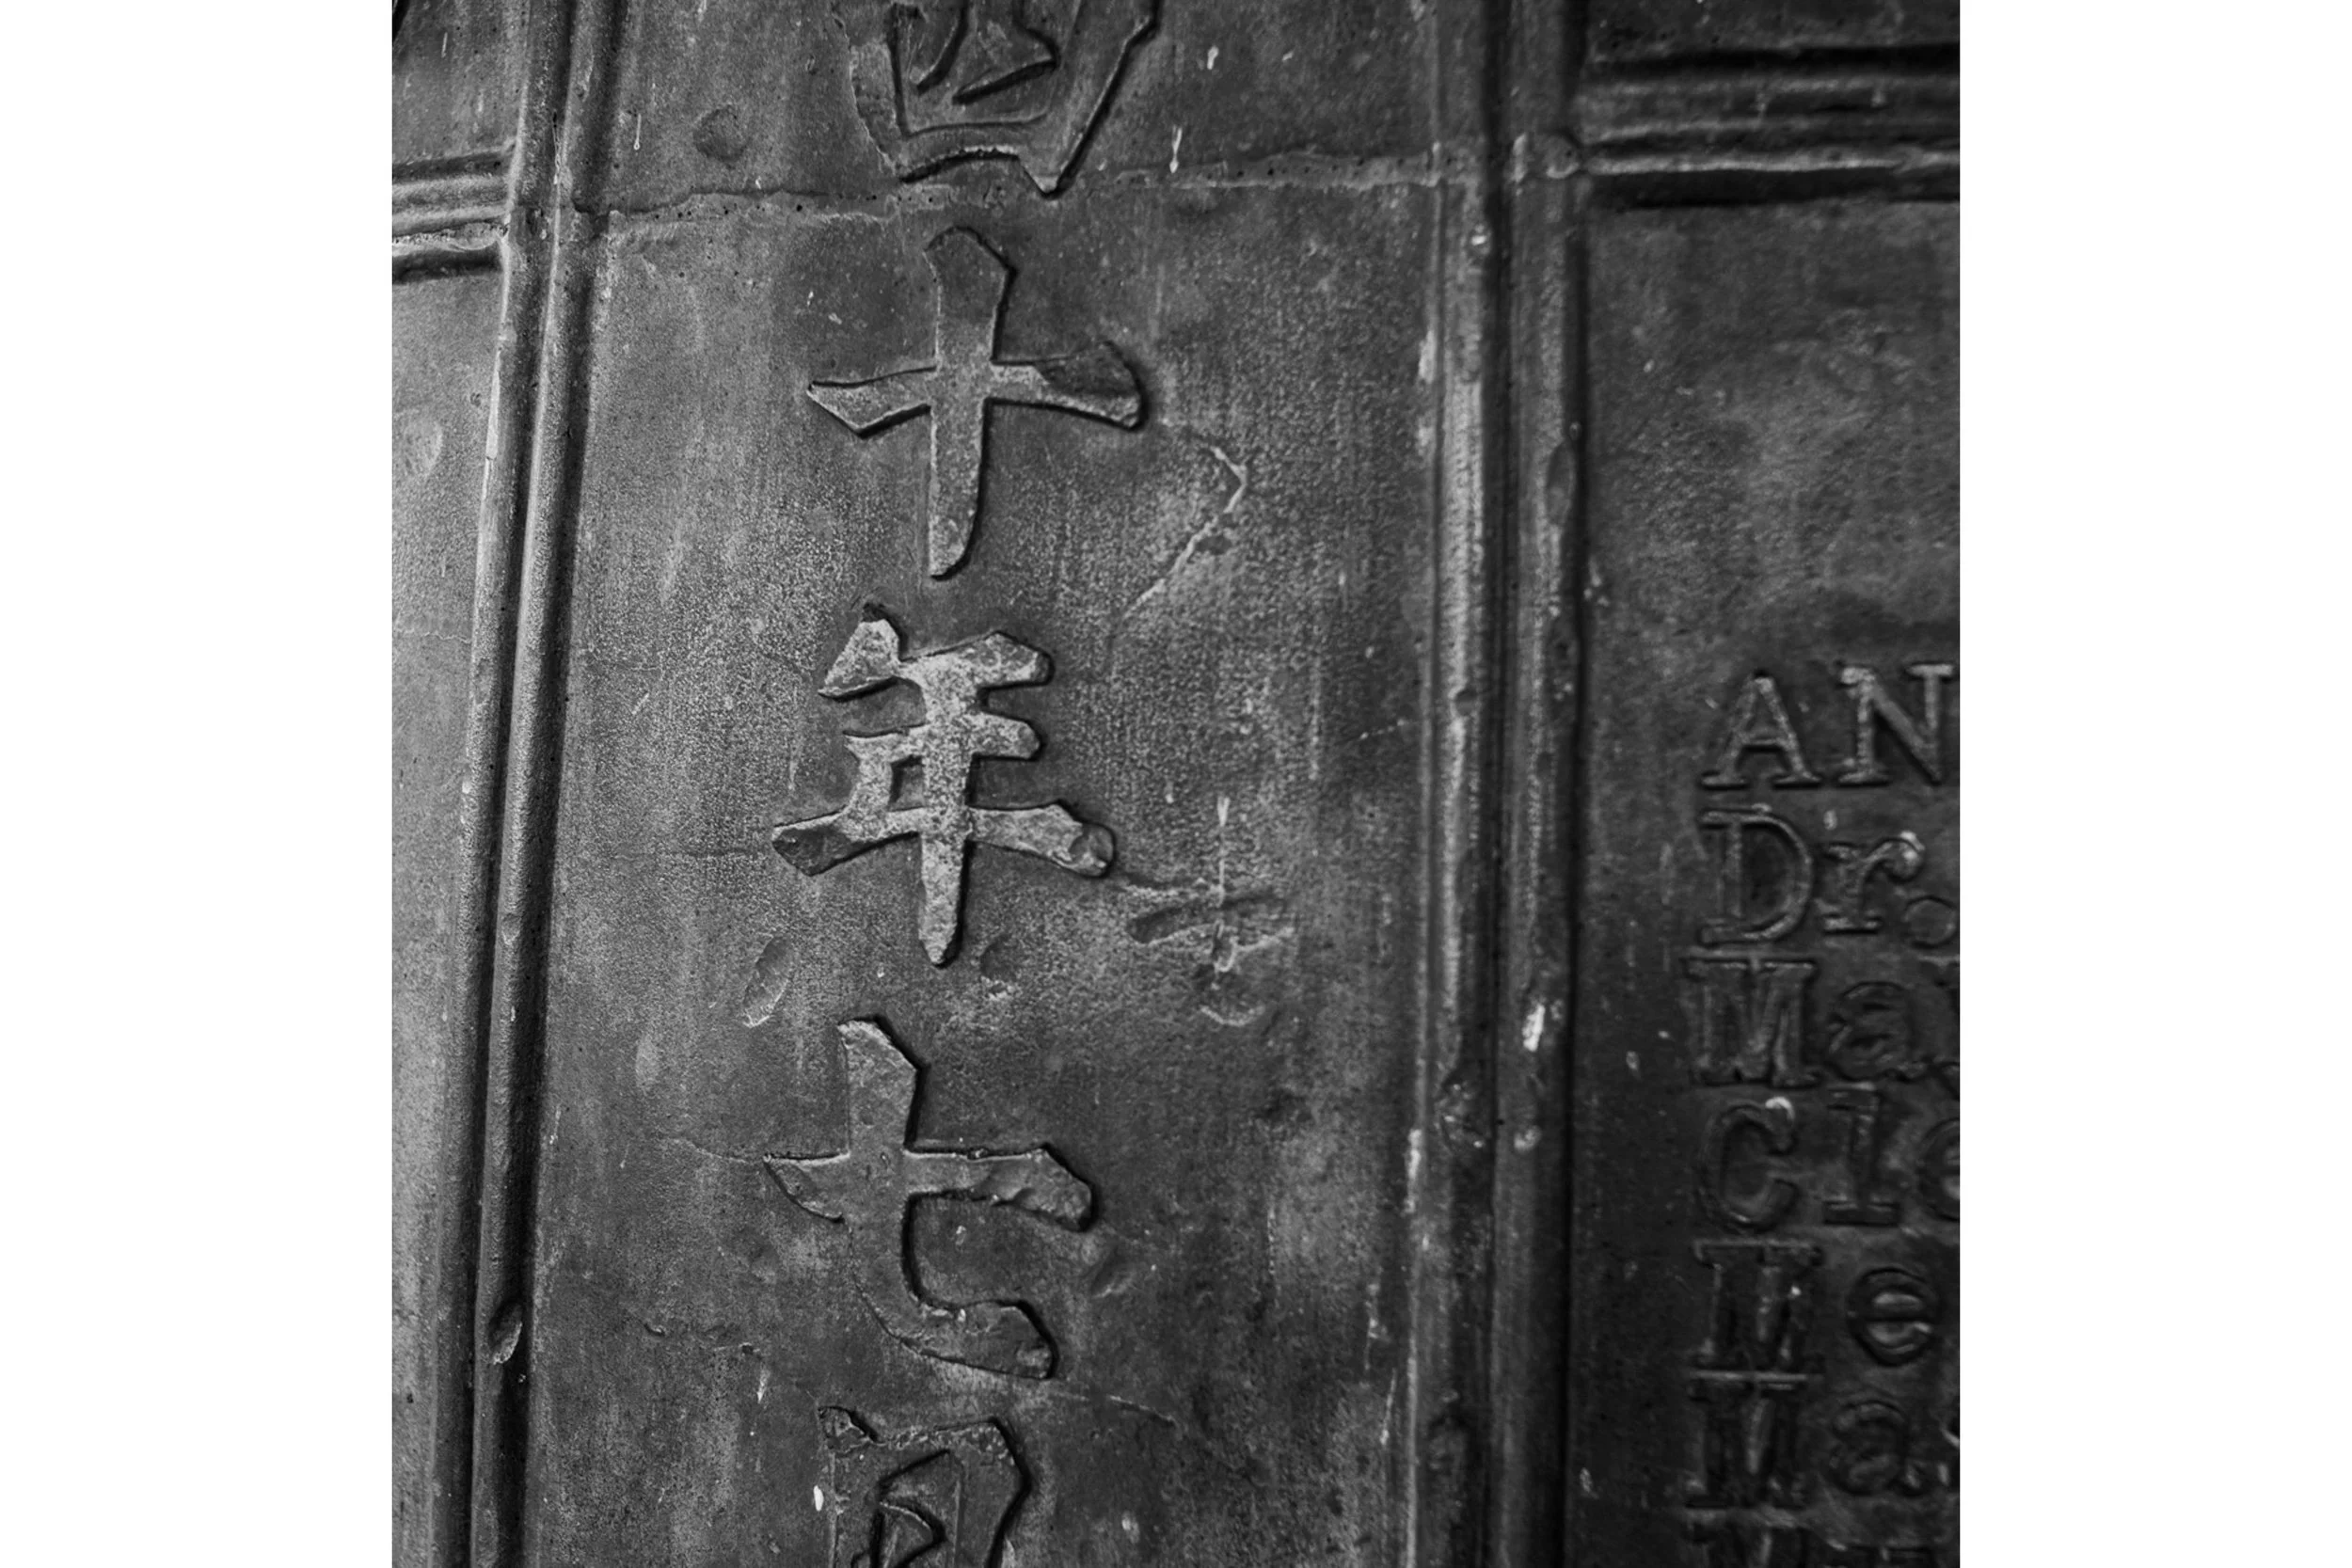 四十年七月
AN
Dr.
May
Cle
Me
Mas